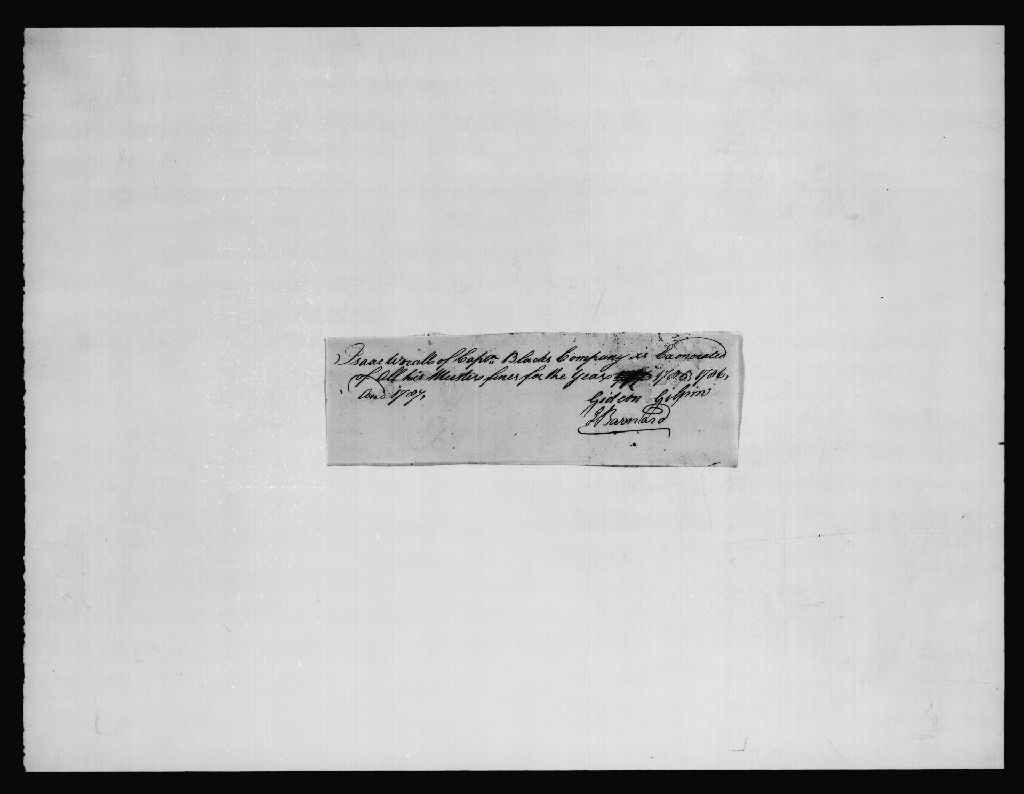 Isaac Worall of Capt.n Blacks Company is Exonorated
of All his Muster fines for the Years 1785, 1786,
And 1787,
Gideon Gilpin
J Barnard